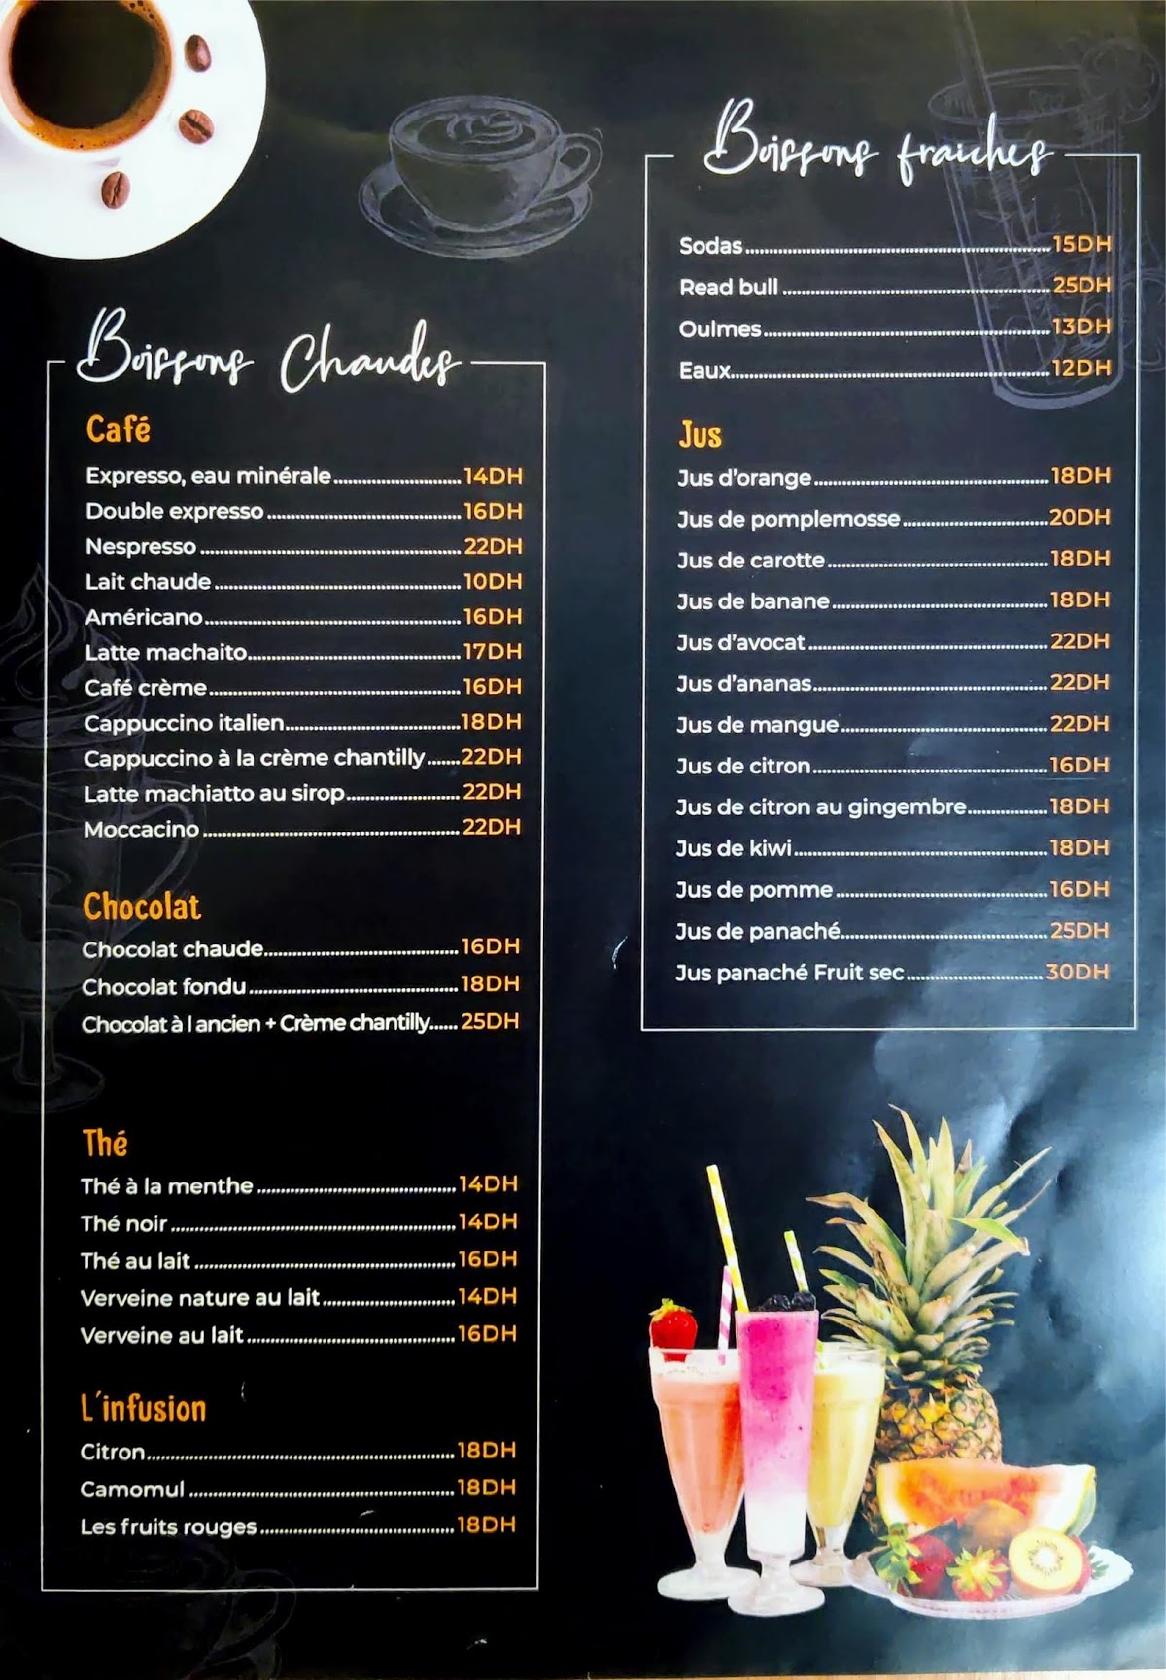 Boissons Chaudes
Café
Expresso, eau minérale 14DH
Double expresso 16DH
Nespresso 22DH
Lait chaude 10DH
Américano 16DH
Latte machaito 17DH
Café crème 16DH
Cappuccino italien 18DH
Cappuccino à la crème chantilly 22DH
Latte machiatto au sirop 22DH
Moccacino 22DH
Chocolat
Chocolat chaude 16DH
Chocolat fondu 18DH
Chocolat à l ancien + Crème chantilly 25DH
Thé
Thé à la menthe 14DH
Thé noir 14DH
Thé au lait 16DH
Verveine nature au lait 14DH
Verveine au lait 16DH
L'infusion
Citron 18DH
Camomul 18DH
Les fruits rouges 18DH
Boissons fraiches
Sodas 15DH
Read bull 25DH
Oulmes 13DH
Eaux 12DH
Jus
Jus d'orange 18DH
Jus de pomplemosse 20DH
Jus de carotte 18DH
Jus de banane 18DH
Jus d'avocat 22DH
Jus d'ananas 22DH
Jus de mangue 22DH
Jus de citron 16DH
Jus de citron au gingembre 18DH
Jus de kiwi 18DH
Jus de pomme 16DH
Jus de panaché 25DH
Jus panaché Fruit sec 30DH